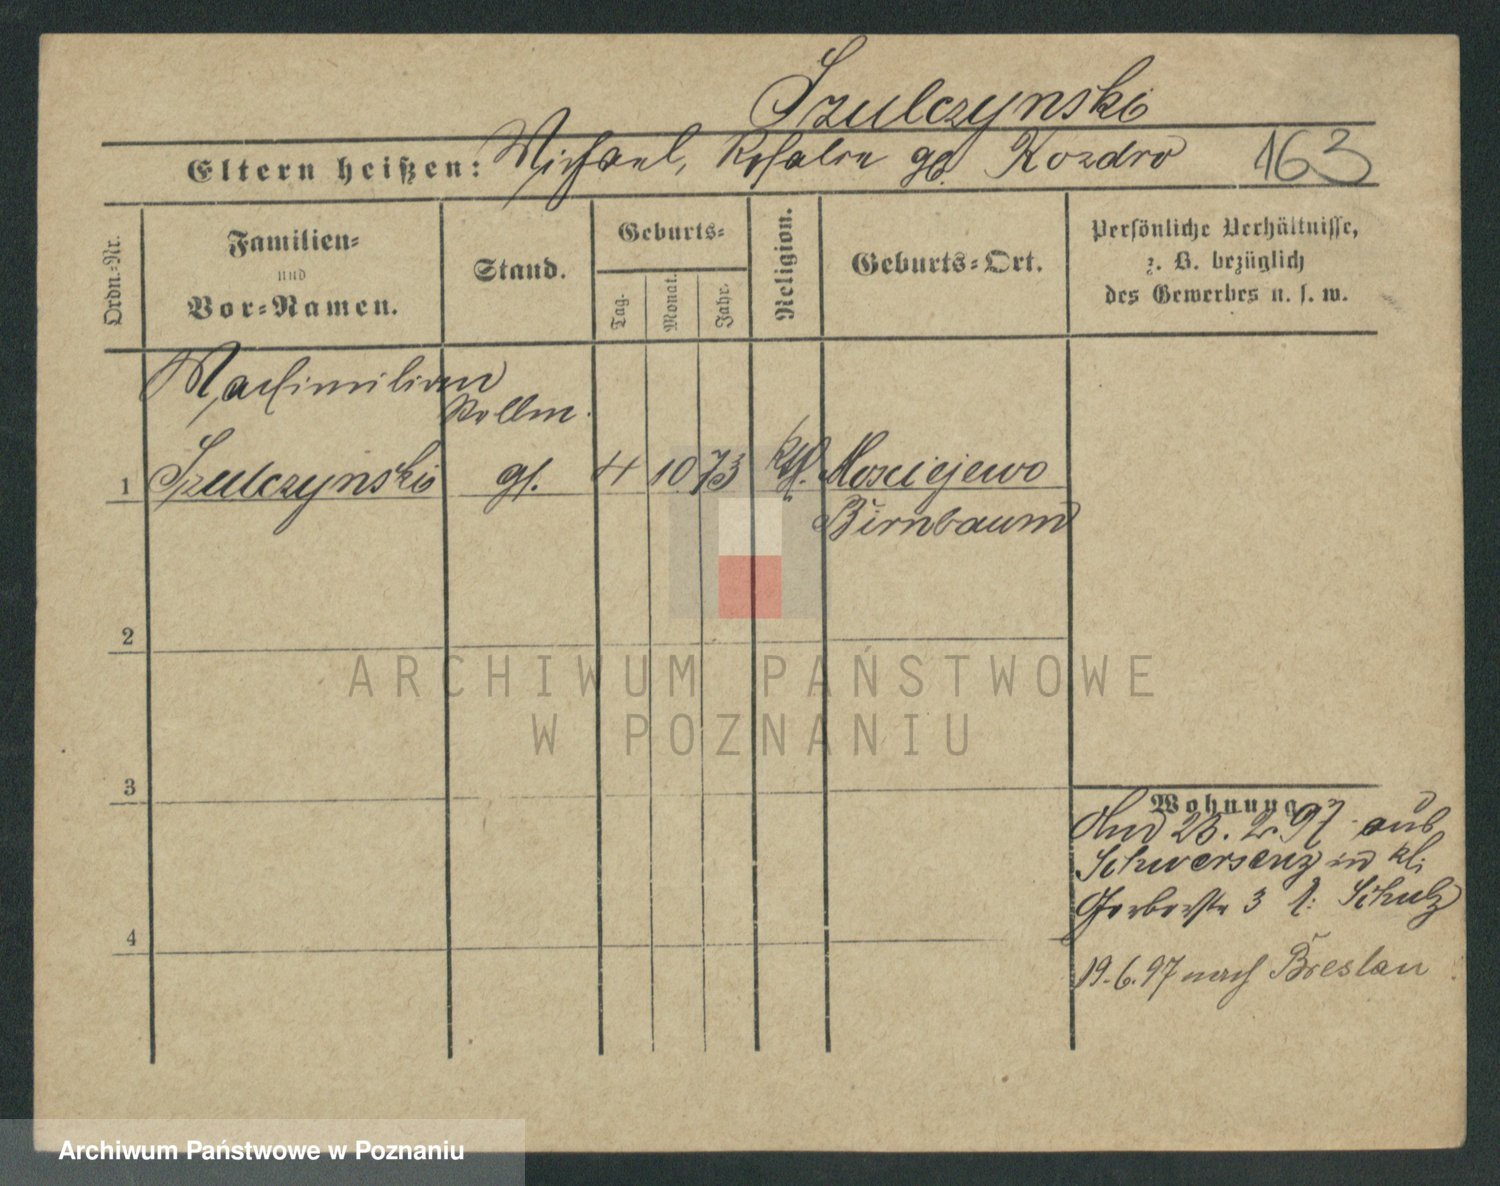 Szulczynski
Eltern heißen: Michael, Rosalie gb. Kozdro 163
Ordn.-Nr.
Familien-
und
Vor-Namen.
Stand.
Geburts-
Tag.
Monat.
Jahr.
Religion.
Geburts-Ort.
Persönliche Verhältnisse,
z. B. bezüglich
des Gewerbes u. s. w.
Maximilian
1 Szulczynski gs. 4 10 73 kth. Mosciejewo
Birnbaum
2
3
4
Wohnung
23. 2. 97 aus
Schwersenz in kl.
Gerberstr 3 b. Schulz
19. 6. 97 nach Breslau
ARCHIWUM PAŃSTWOWE
W POZNANIU
Archiwum Państwowe w Poznaniu